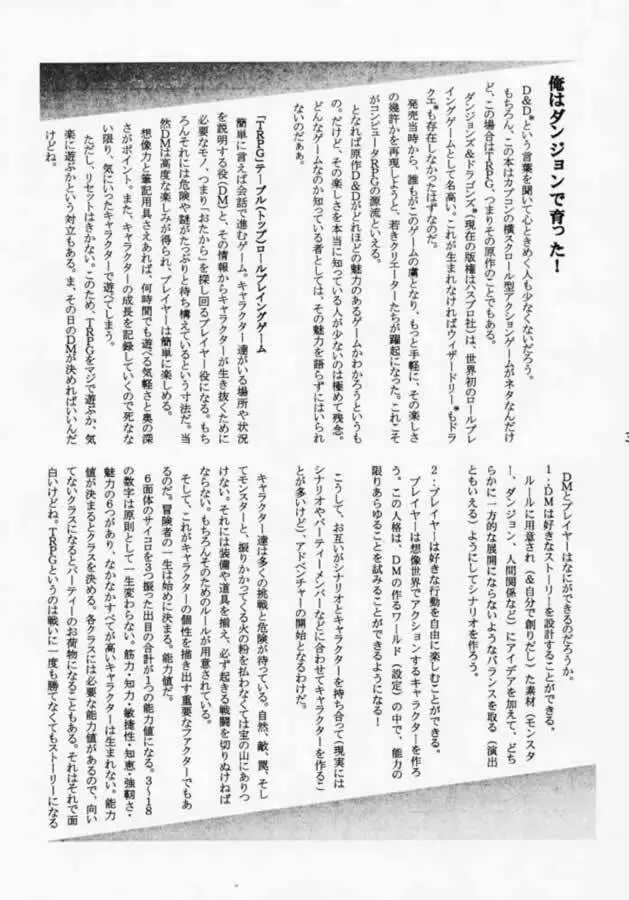 俺はダンジョンで育った！
D＆D®という言葉を聞いて心ときめく人も少なくないだろう。
もちろん、この本はカプコンの横スクロール型アクションゲームがネタなんだけ
ど、この場合はTRPG、つまりその原作のことでもある。
ダンジョンズ＆ドラゴンズ®（現在の版権はハスブロ社）は、世界初のロールプレ
イングゲームとして名高い。これが生まれなければウィザードリー®もドラ
クエ®も存在しなかったはずなのだ。
発売当時から、誰もがこのゲームの虜となり、もっと手軽に、その楽しさ
の幾許かを再現しようと、若きクリエーターたちが躍起になった。これこそ
がコンピュータRPGの源流といえる。
となれば原作D＆Dがどれほどの魅力のあるゲームかわかろうというも
の。だけど、その楽しさを本当に知っている人が少ないのは極めて残念。
どんなゲームなのか知っている者としては、その魅力を語らずにはいられ
ないのだぁぁ。
「TRPG」テーブル（トップ）ロールプレイングゲーム
簡単に言えば会話で進むゲーム。キャラクター達がいる場所や状況
を説明する役（DM）と、その情報からキャラクターが生き抜くために
必要なモノ、つまり「おたから」を探し回るプレイヤー役になる。もち
ろんそれには危険や謎がたっぷりと待ち構えているという寸法だ。当
然DMは高度な楽しみが得られ、プレイヤーは簡単に楽しめる。
想像力と筆記用具さえあれば、何時間でも遊べる気軽さと奥の深
さがポイント。また、キャラクターの成長を記録していくので死なな
い限り、気にいったキャラクターで遊べてしまう。
ただし、リセットはきかない。このため、TRPGをマジで遊ぶか、気
楽に遊ぶかという対立もある。ま、その日のDMが決めればいいんだ
けどね。
DMとプレイヤーはなにができるのだろうか。
1：DMは好きなストーリーを設計することができる。
ルールに用意され（＆自分で創りだし）た素材（モンスタ
ー、ダンジョン、人間関係など）にアイデアを加えて、どち
らかに一方的な展開にならないようなバランスを取る（演出
ともいえる）ようにしてシナリオを作ろう。
2：プレイヤーは好きな行動を自由に楽しむことができる。
プレイヤーは想像世界でアクションするキャラクターを作ろ
う。この人格は、DMの作るワールド（設定）の中で、能力の
限りあらゆることを試みることができるようになる！
こうして、お互いがシナリオとキャラクターを持ち合って（現実には
シナリオやパーティーメンバーなどに合わせてキャラクターを作るこ
とが多いけど）、アドベンチャーの開始となるわけだ。
キャラクター達は多くの挑戦と危険が待っている。自然、敵、罠、そし
てモンスターと、振りかかってくる火の粉を払わなくては宝の山にありつ
けない。それには装備や道具を揃え、必ず起きる戦闘を切りぬけねば
ならない。もちろんそのためのルールが用意されている。
そして、これがキャラクターの個性を描き出す重要なファクターでもあ
るのだ。冒険者の一生は始めに決まる。能力値だ。
6面体のサイコロを3つ振った出目の合計が1つの能力値になる。3～18
の数字は原則として一生変わらない。筋力・知力・敏捷性・知恵・強靭さ・
魅力の6つがあり、なかなかすべてが高いキャラクターは生まれない。能力
値が決まるとクラスを決める。各クラスには必要な能力値があるので、向い
てないクラスになるとパーティーのお荷物になることもある。それはそれで面
白いけどね。TRPGというのは戦いに一度も勝てなくてもストーリーになる